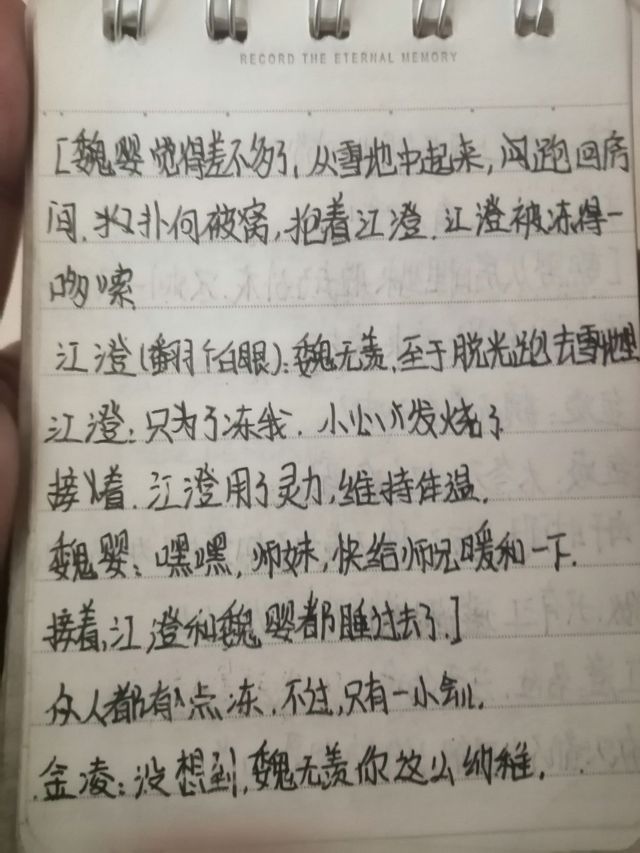 RECORD THE ETERNAL MEMORY
[魏婴觉得差不多了,从雪地中起来,闪跑回房
间.扑向被窝,抱着江澄.江澄被冻得一
哆嗦
江澄(翻个白眼):魏无羡,至于脱光跑去雪地里
江澄:只为了冻我.小心发烧了
接着.江澄用了灵力,维持体温.
魏婴:嘿嘿,师妹,快给师兄暖和一下.
接着,江澄和魏婴都睡过去了.]
众人都有点冻.不过,只有一小会儿.
金凌:没想到,魏无羡你这么幼稚.